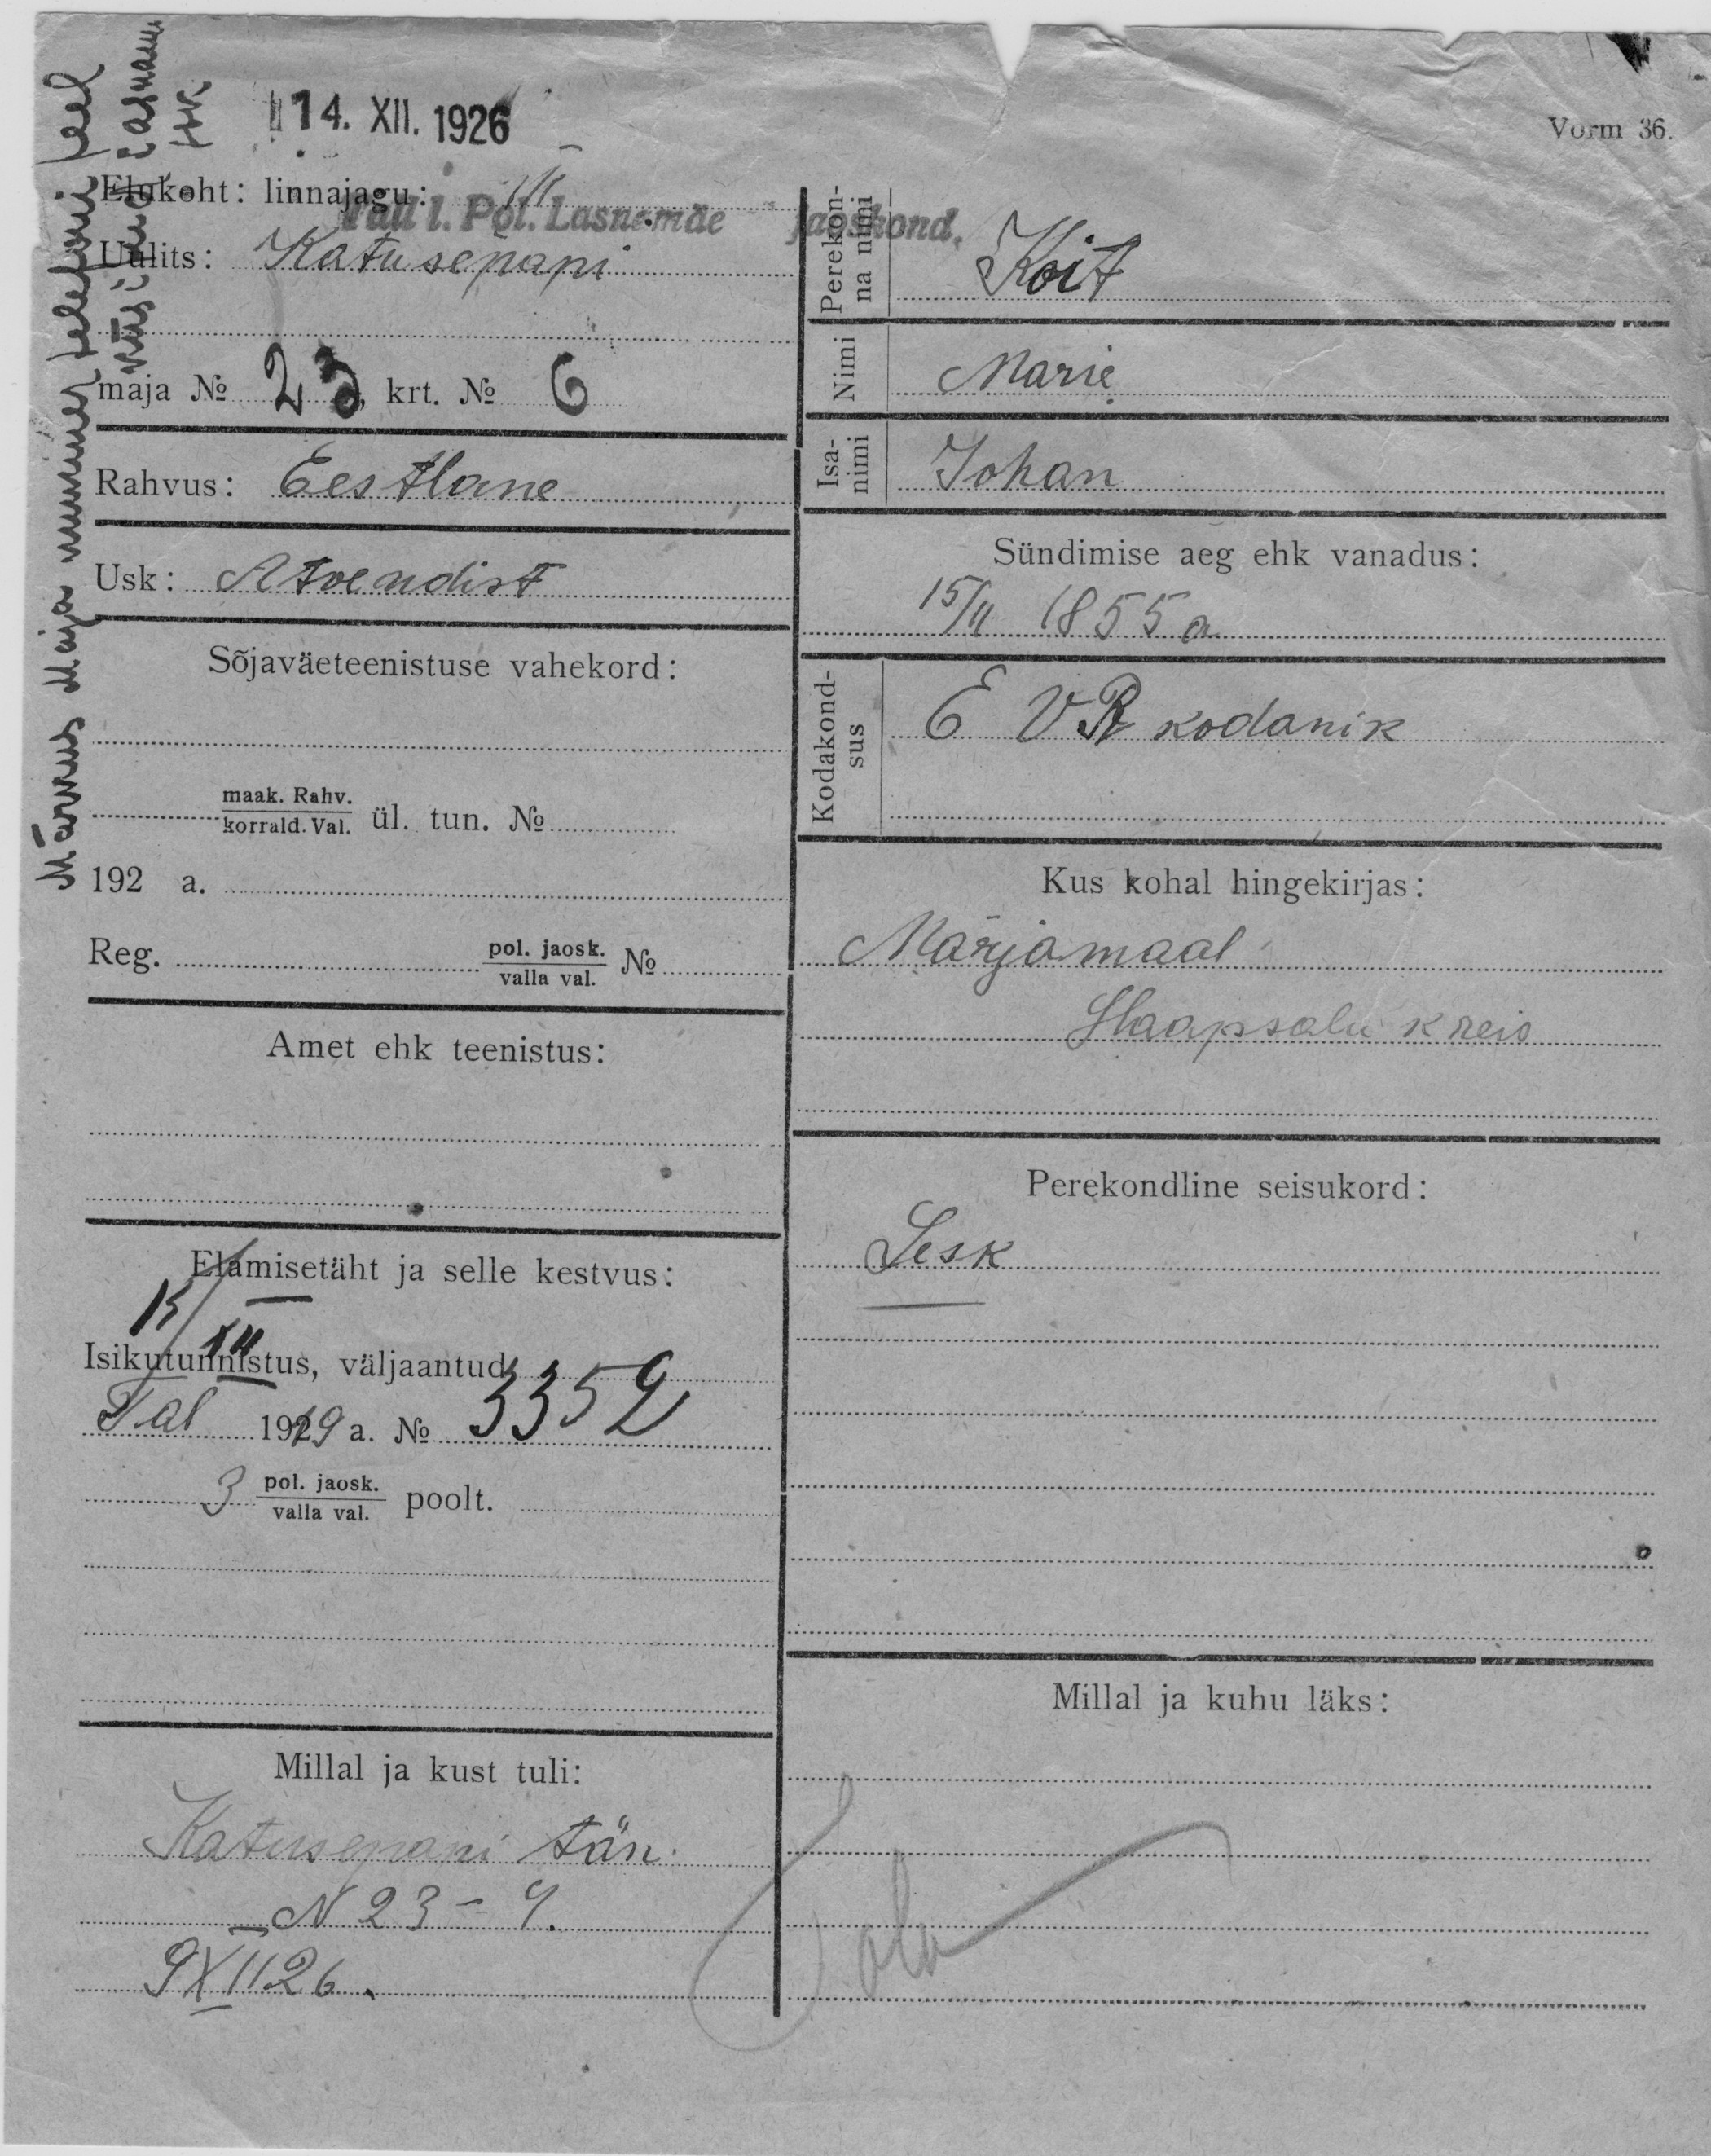 Märkus Maja nummer telefoni teel
küsitud Lasnam
14. XII. 1926
Vorm 36.
Elukoht: linnajagu: III
Tall l. Pol. Lasnamäe jaoskond.
Uulits: Katusepapi
maja № 23, krt. № 6
Rahvus: Eestlane
Usk: Atvendist
Sõjaväeteenistuse vahekord:
maak. Rahv.
korrald. Val. ül. tun. №
192 a.
Reg. pol. jaosk.
valla val. №
Amet ehk teenistus:
Elamisetäht ja selle kestvus:
Isikutunnistus, väljaantud
15/XII
Tal 1919 a. № 3352
3 pol. jaosk.
valla val. poolt.
Millal ja kust tuli:
Katusepapi tän.
N 23 - 4.
9 XII 26.
Perekon-
na nimi Koit
Nimi Marie
Isa-
nimi Johan
Sündimise aeg ehk vanadus:
15/II 1855 a
Kodakond-
sus E V R kodanik
Kus kohal hingekirjas:
Märjamaal
Haapsalu kreis
Perekondline seisukord:
Lesk
Millal ja kuhu läks: